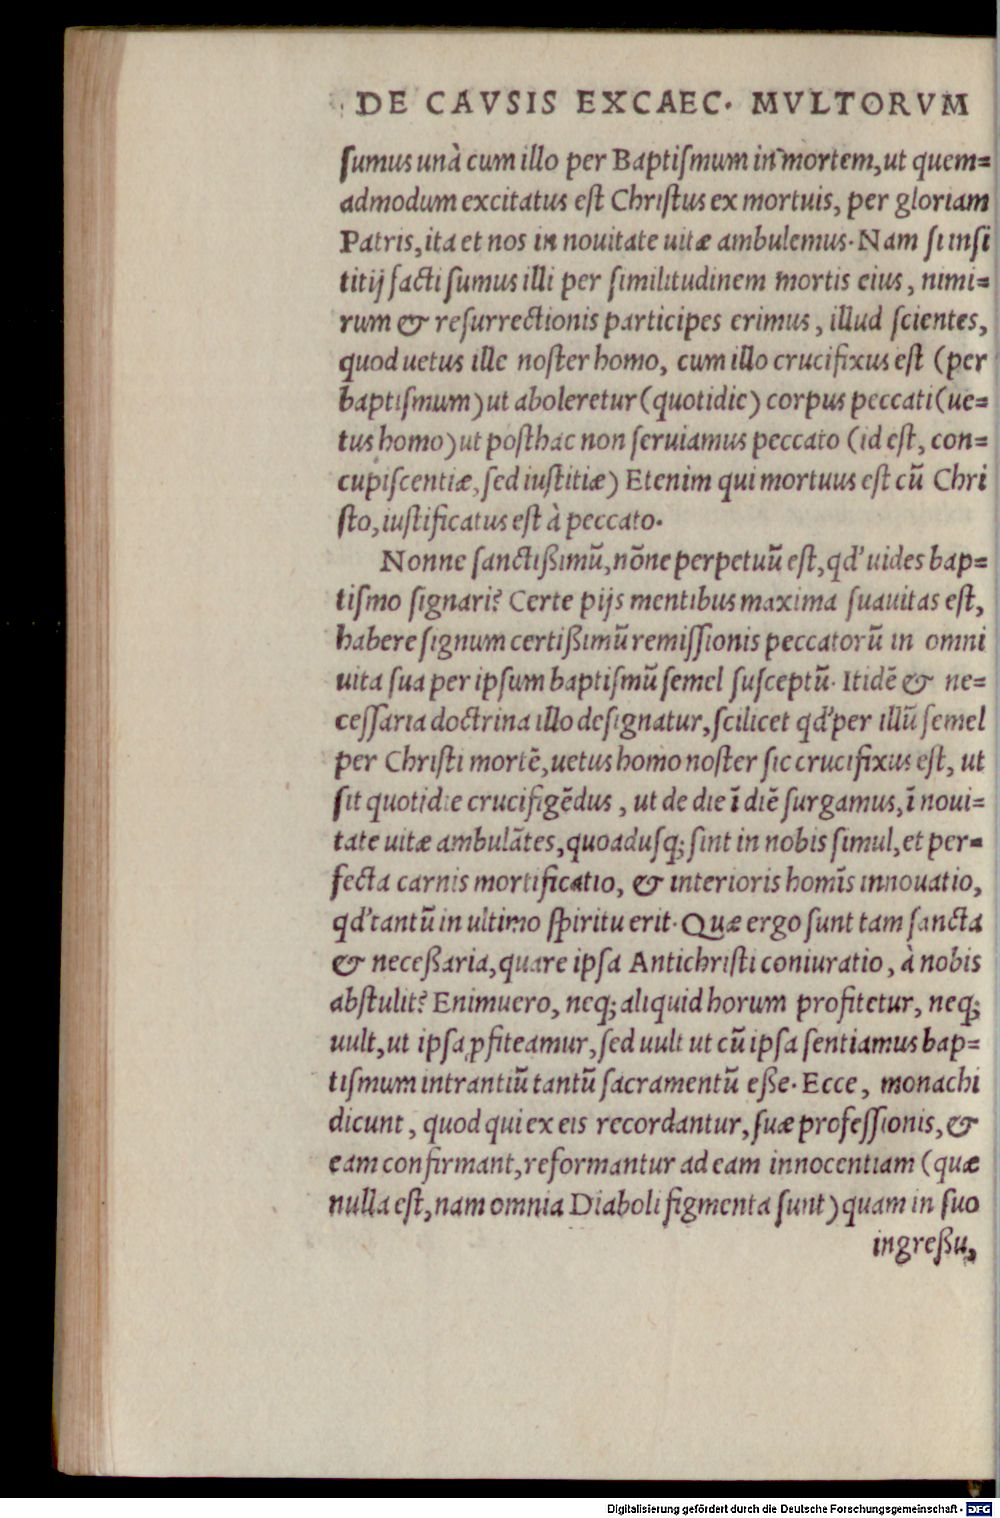 DE CAVSIS EXCAEC. MVLTORVM
sumus unà cum illo per Baptismum in mortem, ut quem=
admodum excitatus est Christus ex mortuis, per gloriam
Patris, ita et nos in nouitate uitæ ambulemus. Nam si insi
titij facti sumus illi per similitudinem mortis eius, nimi=
rum & resurrectionis participes erimus, illud scientes,
quod uetus ille noster homo, cum illo crucifixus est (per
baptismum) ut aboleretur (quotidie) corpus peccati (ue=
tus homo) ut posthac non seruiamus peccato (id est, con=
cupiscentiæ, sed iustitiæ) Etenim qui mortuus est cũ Chri
sto, iustificatus est à peccato.
Nonne sanctißimũ, nõne perpetuũ est, qd' uides bap=
tismo signari? Certe pijs mentibus maxima suauitas est,
habere signum certißimũ remissionis peccatorũ in omni
uita sua per ipsum baptismũ semel susceptũ. Itidẽ & ne=
cessaria doctrina illo designatur, scilicet qd' per illũ semel
per Christi mortẽ, uetus homo noster sic crucifixus est, ut
sit quotidie crucifigẽdus, ut de die ĩ diẽ surgamus, ĩ noui=
tate uitæ ambulãtes, quoadusq; sint in nobis simul, et per=
fecta carnis mortificatio, & interioris homĩs innouatio,
qd' tantũ in ultimo spiritu erit. Quæ ergo sunt tam sancta
& neceßaria, quare ipsa Antichristi coniuratio, à nobis
abstulit? Enimuero, neq; aliquid horum profitetur, neq;
uult, ut ipsa ꝓfiteamur, sed uult ut cũ ipsa sentiamus bap=
tismum intrantiũ tantũ sacramentũ eße. Ecce, monachi
dicunt, quod qui ex eis recordantur, suæ professionis, &
eam confirmant, reformantur ad eam innocentiam (quæ
nulla est, nam omnia Diaboli figmenta sunt) quam in suo
ingreßu,
Digitalisierung gefördert durch die Deutsche Forschungsgemeinschaft - DFG